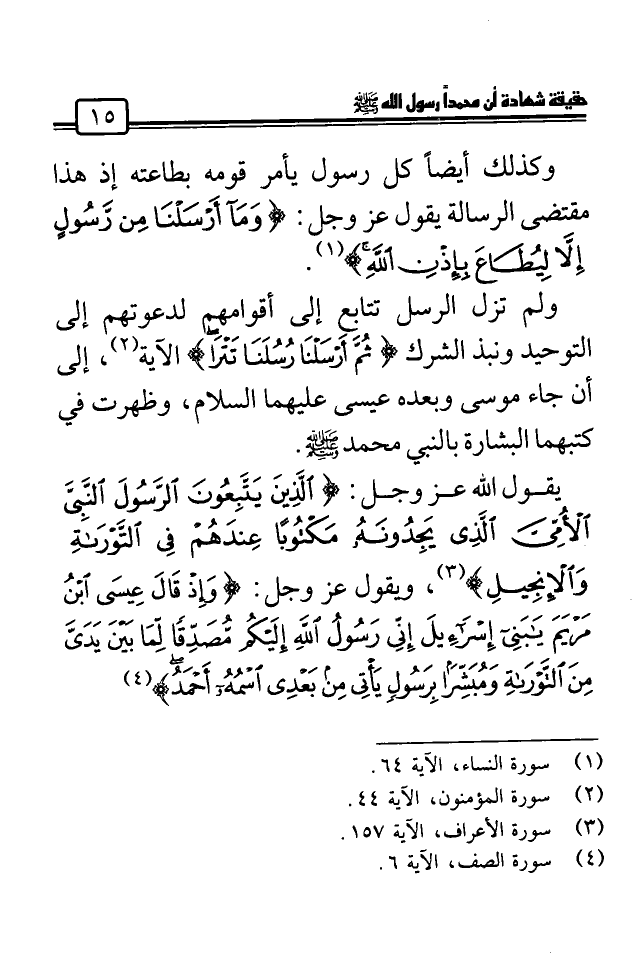 حقيقة شهادة أن محمداً رسول الله ﷺ
١٥
وكذلك أيضاً كل رسول يأمر قومه بطاعته إذ هذا
مقتضى الرسالة يقول عز وجل: ﴿ وَمَآ أَرْسَلْنَا مِن رَّسُولٍ
إِلَّا لِيُطَاعَ بِإِذْنِ ٱللَّهِۚ ﴾(١).
ولم تزل الرسل تتابع إلى أقوامهم لدعوتهم إلى
التوحيد ونبذ الشرك ﴿ ثُمَّ أَرْسَلْنَا رُسُلَنَا تَتْرَاۖ ﴾ الآية(٢)، إلى
أن جاء موسى وبعده عيسى عليهما السلام، وظهرت في
كتبهما البشارة بالنبي محمد ﷺ.
يقول الله عز وجل: ﴿ ٱلَّذِينَ يَتَّبِعُونَ ٱلرَّسُولَ ٱلنَّبِىَّ
ٱلْأُمِّىَّ ٱلَّذِى يَجِدُونَهُۥ مَكْتُوبًا عِندَهُمْ فِى ٱلتَّوْرَىٰةِ
وَٱلْإِنجِيلِ ﴾(٣)، ويقول عز وجل: ﴿ وَإِذْ قَالَ عِيسَى ٱبْنُ
مَرْيَمَ يَٰبَنِىٓ إِسْرَٰٓءِيلَ إِنِّى رَسُولُ ٱللَّهِ إِلَيْكُم مُّصَدِّقًا لِّمَا بَيْنَ يَدَىَّ
مِنَ ٱلتَّوْرَىٰةِ وَمُبَشِّرًۢا بِرَسُولٍ يَأْتِى مِنۢ بَعْدِى ٱسْمُهُۥٓ أَحْمَدُۖ ﴾(٤)
(١) سورة النساء، الآية ٦٤.
(٢) سورة المؤمنون، الآية ٤٤.
(٣) سورة الأعراف، الآية ١٥٧.
(٤) سورة الصف، الآية ٦.